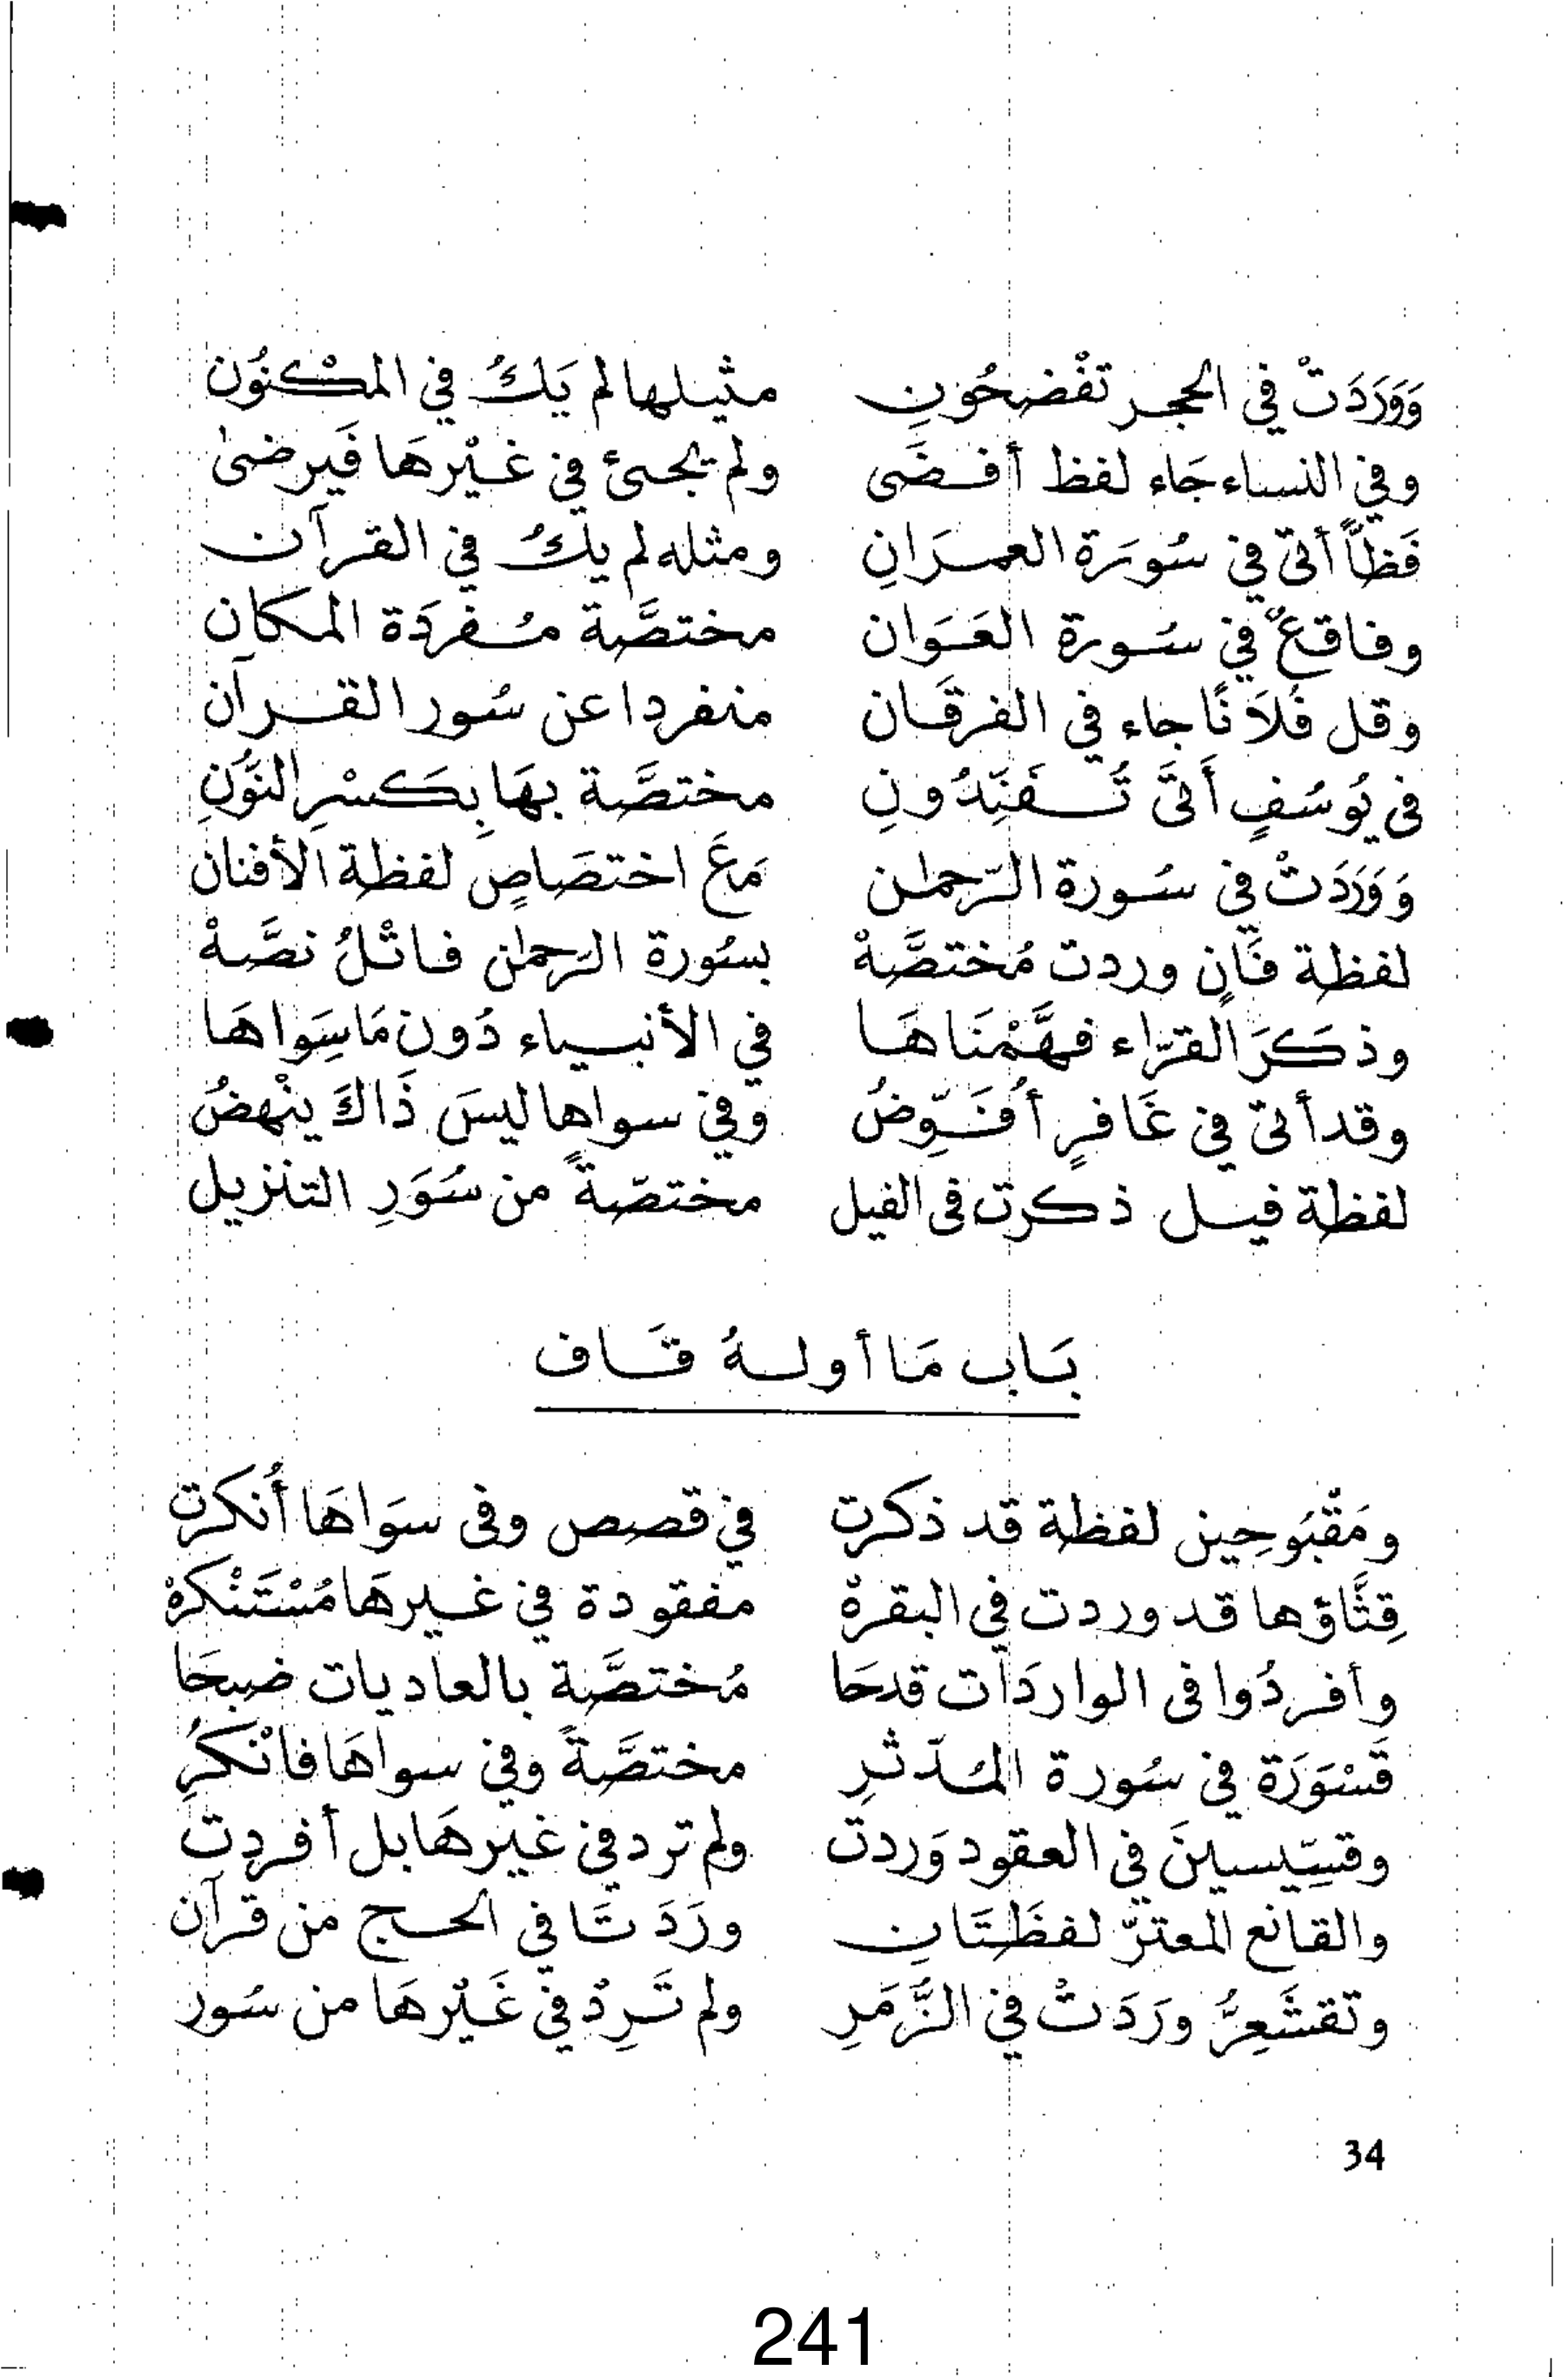 وَوَرَدَتْ في الحجر تَفْضَحُونِ مثيلها لم يَكُ في المكْنُون
وفي النساء جَاء لفظ أفضَى ولم يجئ في غيْرهَا فَيرضى
فَظّاً أتى في سُورَة العمرَانِ ومثله لم يكُ في القرآن
وفاقعٌ في سُورة العَوَان مختصَّة مُفرَدَة المكان
وقل فُلاَنًا جاء في الفرقَان منفردا عن سُور القرآن
في يُوسُفٍ أَتَى تُفَنِّدُونِ مختصَّة بهَا بِكَسْرِ النُّونِ
وَوَرَدَتْ في سُورة الرّحمٰن مَعَ اختصَاصٍ لفظة الأفنان
لفظة فَانٍ وردت مُختصَّهْ بسُورة الرّحمٰن فاتْلُ نصَّهْ
وذكَرَ القرّاء فهَّمْنَاهَا في الأنبياء دُون مَا سِوَاهَا
وقد أتى في غَافرٍ أُفَوِّضُ وفي سواها ليسَ ذَاكَ ينْهضُ
لفظة فيل ذكرت في الفيل مختصّةً من سُوَرِ التنزيل
بَاب مَا أولهُ قَاف
ومَقْبُوحِين لفظة قد ذكرت في قصص وفي سوَاهَا أُنكرت
قِثَّاؤها قد وردت في البقرهْ مفقودة في غيرهَا مُسْتَنْكرهْ
وأفردُوا في الواردَات قدحَا مُختصَّة بالعاديات ضبحَا
قَسْوَرَة في سُورة المُدّثرِ مختصَّةً وفي سواهَا فانْكُرِ
وقسِّيسينَ في العقود وَردت ولم ترد في غيرهَا بل أفردت
والقانع المعترّ لفظَتَانِ ورَدَتَا في الحج من قرآن
وتقشَعِرُّ ورَدَتْ في الزُّمَرِ ولم تَرِدْ في غَيْرهَا من سُور
34
241